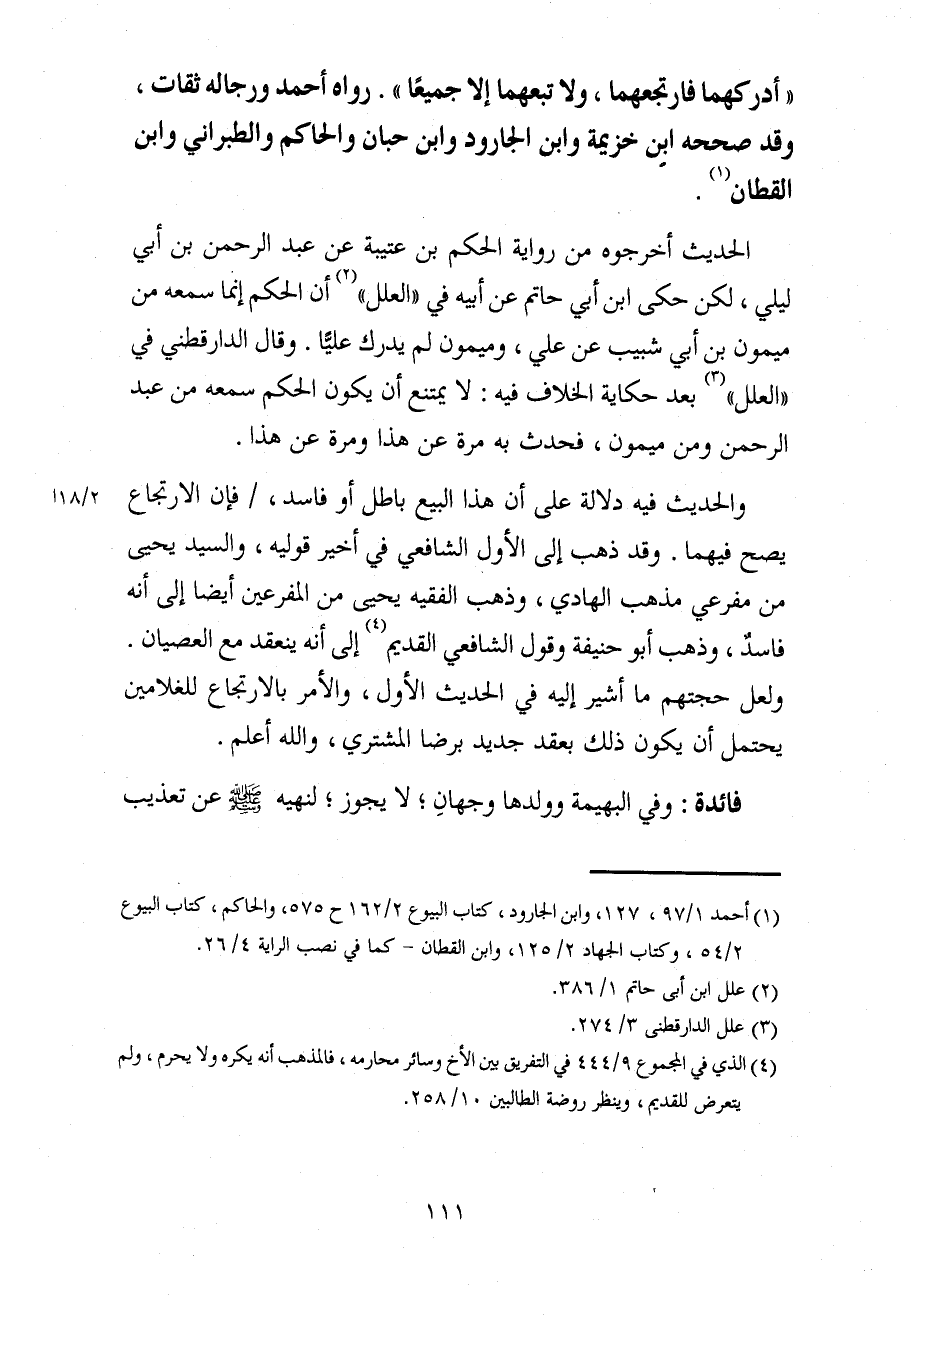 « أدركهما فارتجعهما ، ولا تبعهما إلا جميعًا » . رواه أحمد ورجاله ثقات ،
وقد صححه ابن خزيمة وابن الجارود وابن حبان والحاكم والطبراني وابن
القطان(١) .
الحديث أخرجوه من رواية الحكم بن عتيبة عن عبد الرحمن بن أبي
ليلي ، لكن حكى ابن أبي حاتم عن أبيه في «العلل»(٢) أن الحكم إنما سمعه من
ميمون بن أبي شبيب عن علي ، وميمون لم يدرك عليًّا . وقال الدارقطني في
«العلل»(٣) بعد حكاية الخلاف فيه : لا يمتنع أن يكون الحكم سمعه من عبد
الرحمن ومن ميمون ، فحدث به مرة عن هذا ومرة عن هذا .
والحديث فيه دلالة على أن هذا البيع باطل أو فاسد ، / فإن الارتجاع ١١٨/٢
يصح فيهما . وقد ذهب إلى الأول الشافعي في أخير قوليه ، والسيد يحيى
من مفرعي مذهب الهادي ، وذهب الفقيه يحيى من المفرعين أيضا إلى أنه
فاسدٌ ، وذهب أبو حنيفة وقول الشافعي القديم(٤) إلى أنه ينعقد مع العصيان .
ولعل حجتهم ما أشير إليه في الحديث الأول ، والأمر بالارتجاع للغلامين
يحتمل أن يكون ذلك بعقد جديد برضا المشتري ، والله أعلم .
فائدة : وفي البهيمة وولدها وجهانِ ؛ لا يجوز ؛ لنهيه ﷺ عن تعذيب
(١) أحمد ٩٧/١ ، ١٢٧، وابن الجارود ، كتاب البيوع ١٦٢/٢ ح ٥٧٥، والحاكم ، كتاب البيوع
٥٤/٢ ، وكتاب الجهاد ١٢٥/٢، وابن القطان - كما في نصب الراية ٢٦/٤.
(٢) علل ابن أبى حاتم ٣٨٦/١.
(٣) علل الدارقطنى ٢٧٤/٣.
(٤) الذي في المجموع ٤٤٤/٩ في التفريق بين الأخ وسائر محارمه ، فالمذهب أنه يكره ولا يحرم ، ولم
يتعرض للقديم ، وينظر روضة الطالبين ٢٥٨/١٠.
١١١